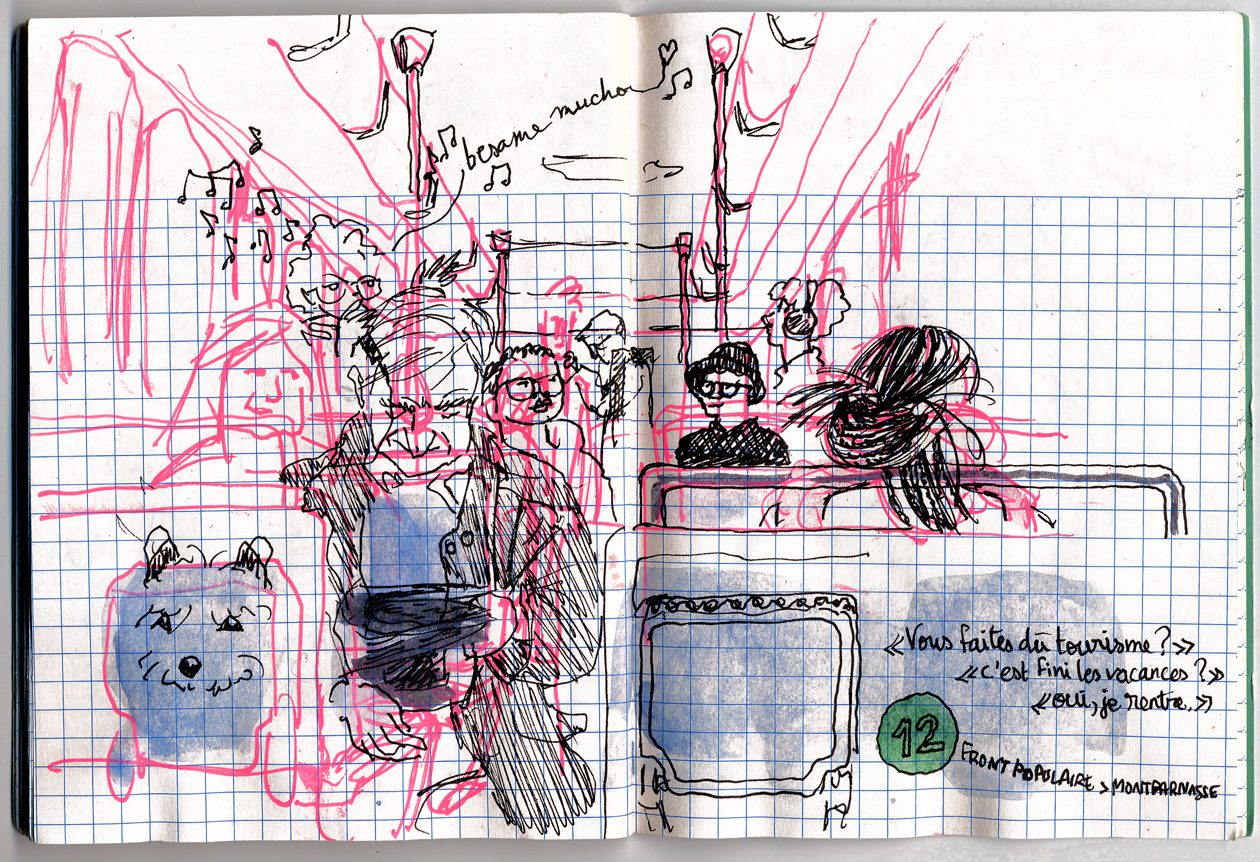 besame mucho
«Vous faites du tourisme?»
«c'est fini les vacances?»
«oui, je rentre.»
12
FRONT POPULAIRE > MONTPARNASSE